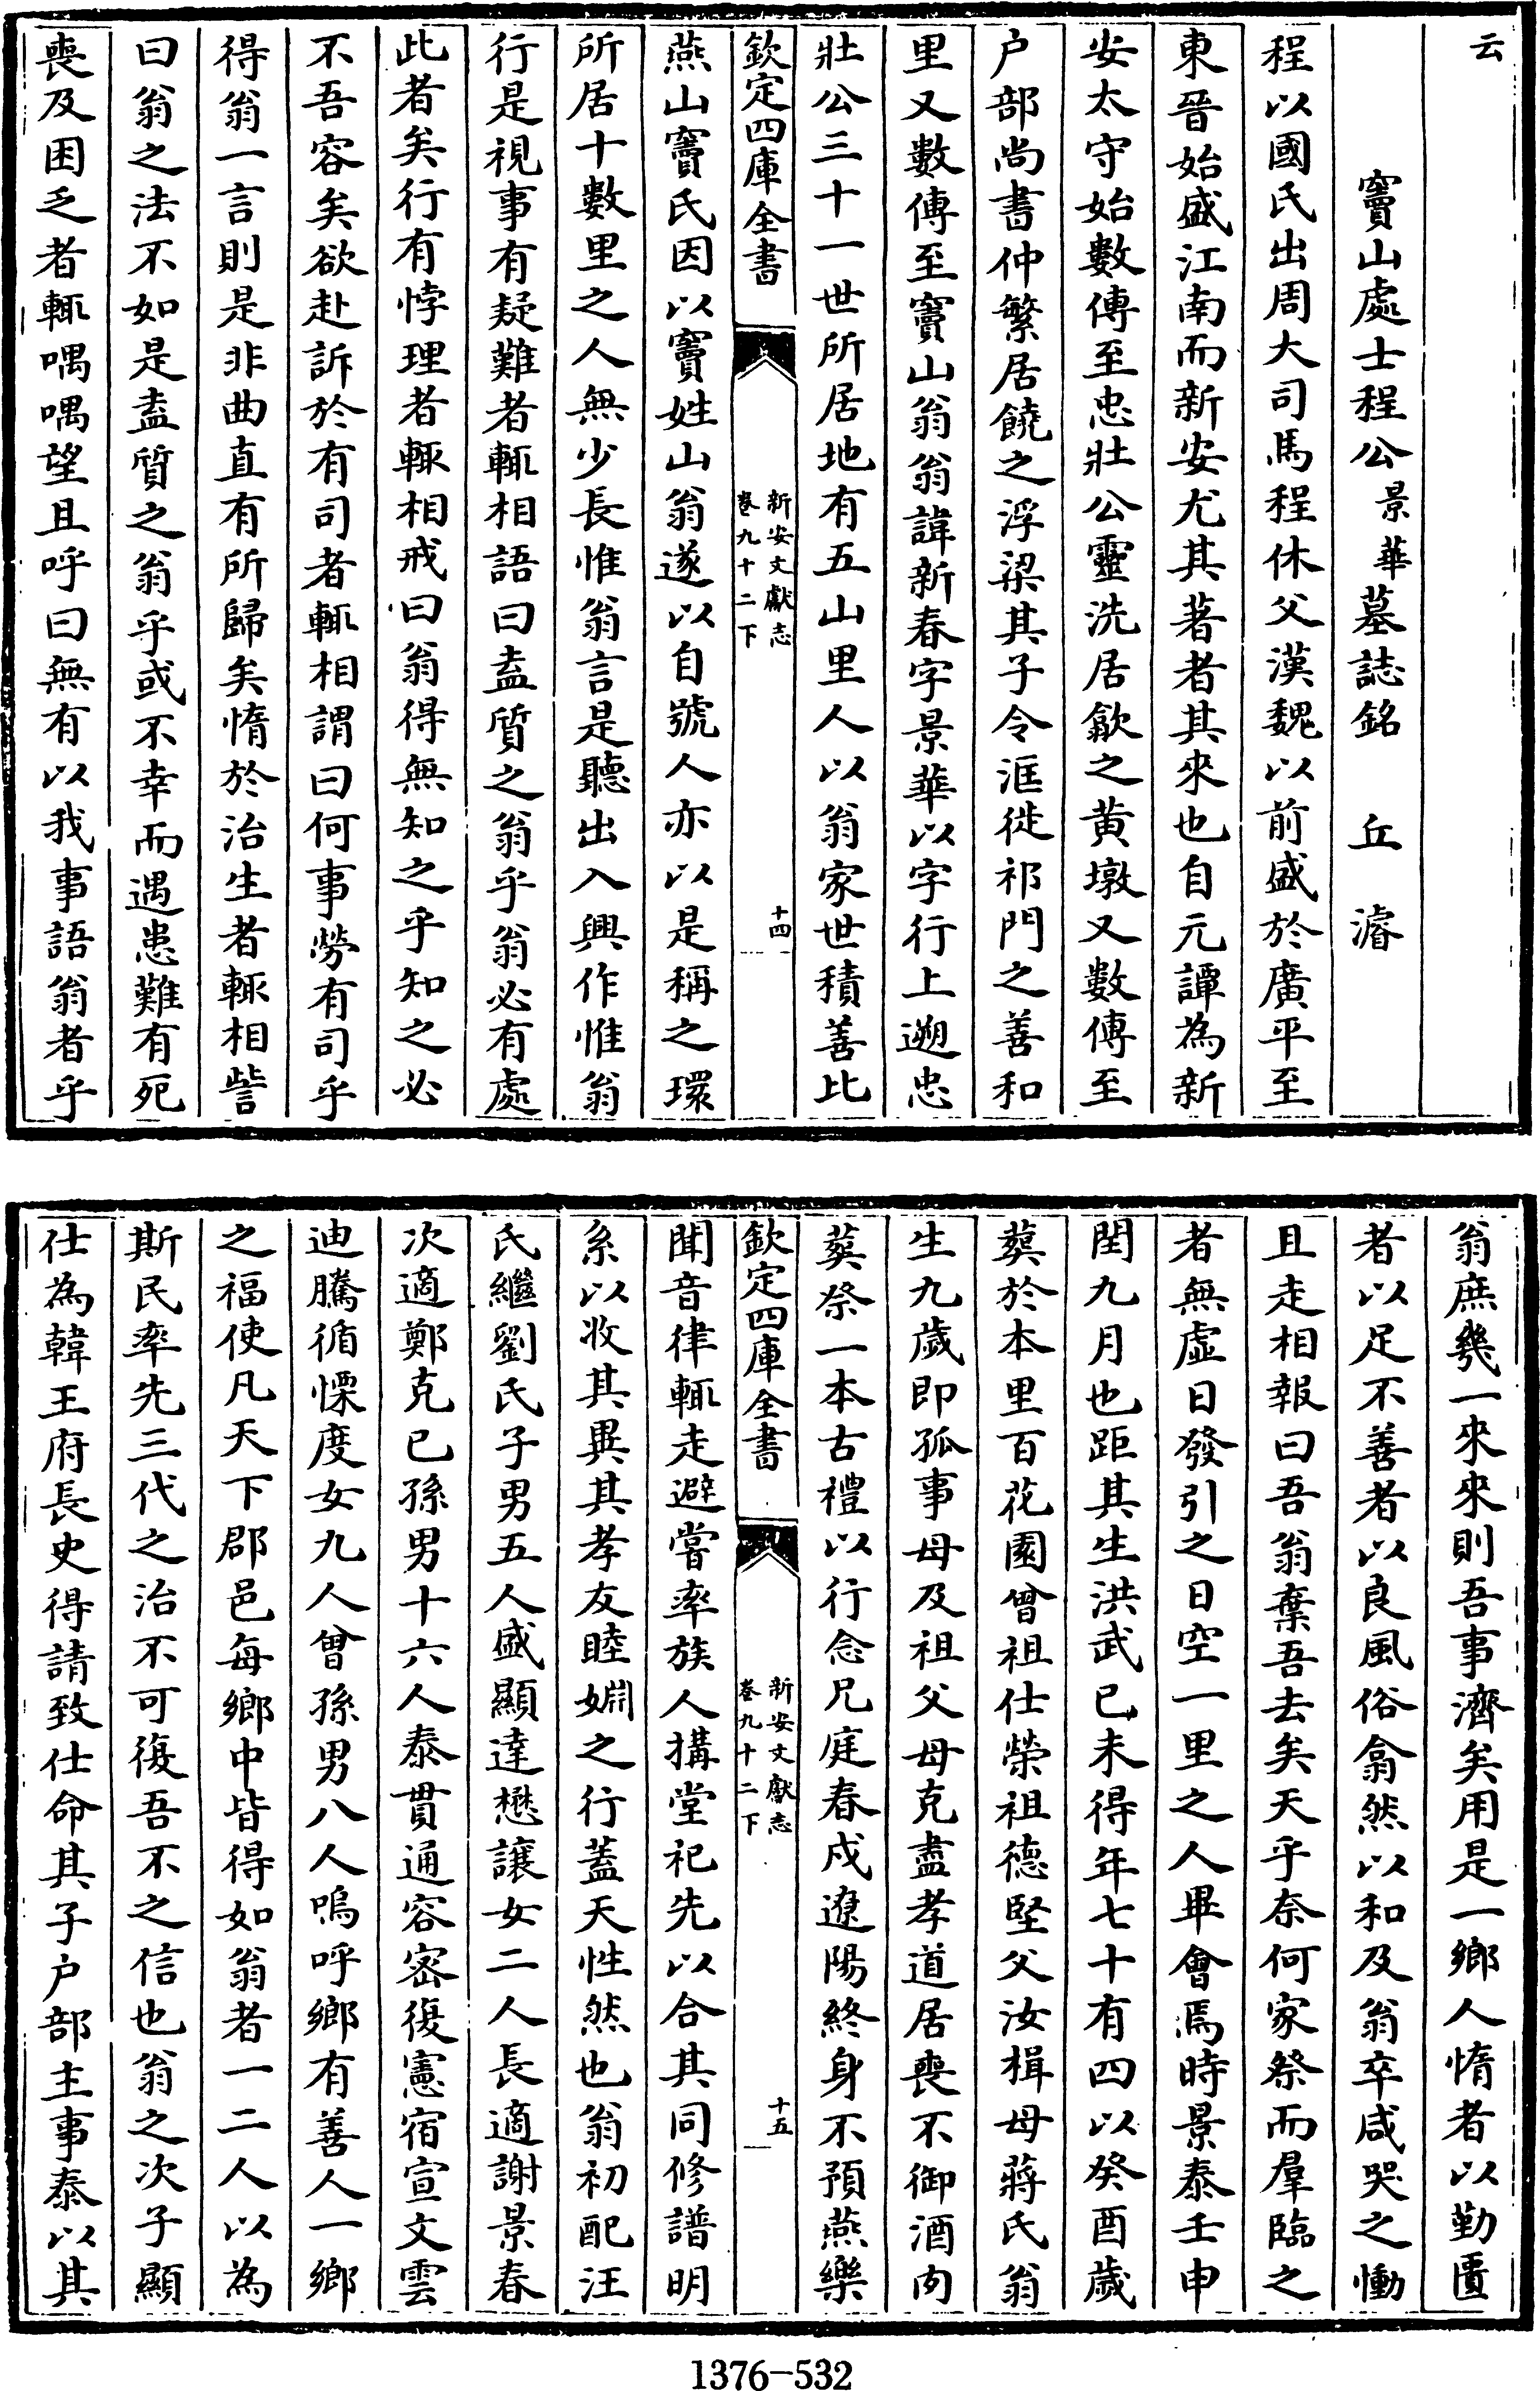 云
竇山處士程公景華墓誌銘　丘濬
程以國氏出周大司馬程休父漢魏以前盛於廣平至
東晉始盛江南而新安尤其著者其來也自元譚為新
安太守始數傳至忠壯公靈洗居歙之黄墩又數傳至
户部尚書仲繁居饒之浮梁其子令洭徙祁門之善和
里又數傳至竇山翁翁諱新春字景華以字行上遡忠
壯公三十一世所居地有五山里人以翁家世積善比
欽定四庫全書
新安文獻志
卷九十二下
十四
燕山竇氏因以竇姓山翁遂以自號人亦以是稱之環
所居十數里之人無少長惟翁言是聽出入興作惟翁
行是視事有疑難者輒相語曰盍質之翁乎翁必有處
此者矣行有悖理者輒相戒曰翁得無知之乎知之必
不吾容矣欲赴訴於有司者輒相謂曰何事勞有司乎
得翁一言則是非曲直有所歸矣惰於治生者輒相訾
曰翁之法不如是盍質之翁乎或不幸而遇患難有死
喪及困乏者輒喁喁望且呼曰無有以我事語翁者乎
翁庶幾一來來則吾事濟矣用是一鄉人惰者以勤匱
者以足不善者以良風俗翕然以和及翁卒咸哭之慟
且走相報曰吾翁棄吾去矣天乎奈何家祭而羣臨之
者無虛日發引之日空一里之人畢會焉時景泰壬申
閏九月也距其生洪武已未得年七十有四以癸酉歲
葬於本里百花園曾祖仕榮祖德堅父汝楫母蔣氏翁
生九歲即孤事母及祖父母克盡孝道居喪不御酒肉
葬祭一本古禮以行念兄庭春戍遼陽終身不預燕樂
欽定四庫全書
新安文獻志
卷九十二下
十五
聞音律輒走避嘗率族人搆堂祀先以合其同修譜明
系以收其異其孝友睦婣之行蓋天性然也翁初配汪
氏繼劉氏子男五人盛顯達懋讓女二人長適謝景春
次適鄭克已孫男十六人泰貫通容密復憲宿宣文雲
迪騰循慄度女九人曾孫男八人嗚呼鄉有善人一鄉
之福使凡天下郡邑每鄉中皆得如翁者一二人以為
斯民率先三代之治不可復吾不之信也翁之次子顯
仕為韓王府長史得請致仕命其子户部主事泰以其
1376-532